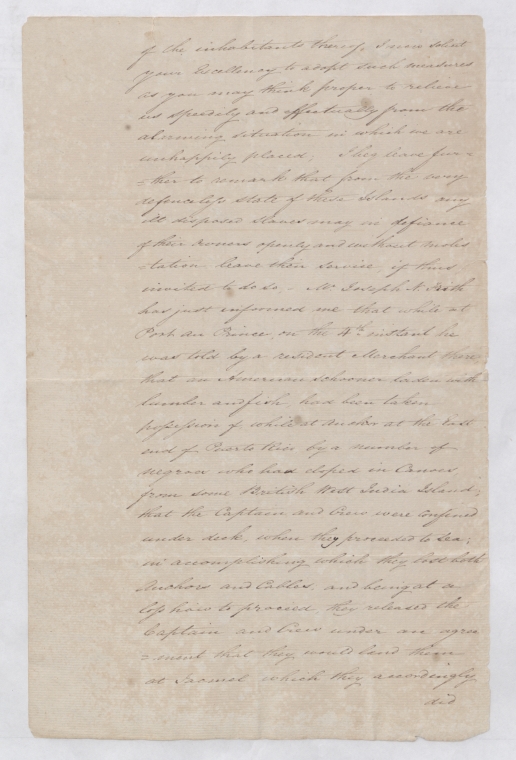 of the inhabitants thereof, I now solicit
your Excellency to adopt such measures
as you may think proper to relieve
us speedily and effectually from the
alarming situation in which we are
unhappily placed; I beg leave fur-
-ther to remark that from the very
defenceless state of these Islands any
ill disposed Slaves may in defiance
of their owners openly and without moles
-tation leave their service, if thus
invited to do so. - Mr Joseph
has just informed me that while at
Port au Prince, on the 4th instant he
was told by a resident Merchant there
that an American Schooner laden with
lumber and fish, had been taken
possession of while at Anchor at the East
end of Puerto Rico by a number of
negroes who had eloped in Canoes
from some British West India Island;
that the Captain and Crew were confined
under deck, when they proceeded to Sea;
in accomplishing which they lost both
Anchors and Cables, and being at a
loss how to proceed they released the
Captain and Crew under an agree
-ment that they would land them
at Jacmel which they accordingly
did